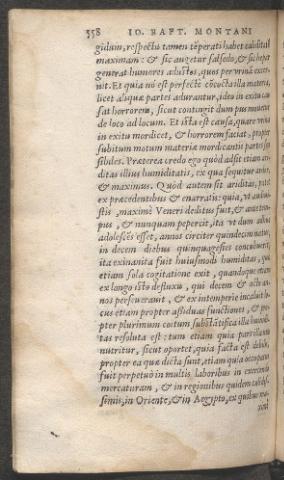 358 IO. BAPT. MONTANI
gidum, respectu tamen tẽperati habet caliditatẽ
maximam: & sic augetur salsedo, & sic hepar
generat humores adustos, quos per urinã exter-
nit. Et quia nõ est perfectè cõcocta illa materia,
licet aliquæ partes adurantur, ideo in exitu cau
sat horrorem, sicut contingit dum pus mouetur
de loco ad locum. Et ista est causa, quare urina
in exitu mordicet, & horrorem faciat, propter
subitum motum materiæ mordicantis partes sen
sibiles. Præterea credo ego quòd adsit etiam ari
ditas illius humiditatis, ex qua sequitur ardor,
& maximus. Quòd autem sit ariditas, patet
ex præcedentibus & enarratis: quia, ut audiui-
stis, maximè Veneri deditus fuit, & ante tem-
pus, & nunquam pepercit, ita ut dum adhuc
adolescẽs esset, annos circiter quindecim natus,
in decem diebus quinquagesies concubuerit,
ita exinanita fuit huiusmodi humiditas, quæ
etiam sola cogitatione exit, quandoque etiam
ex longo isto defluxu, qui decem & octo an-
nos perseuerauit, & ex intemperie incaluit lo-
cus etiam propter assiduas functiones, & pro
pter plurimum coitum substãtifica illa humidi-
tas resoluta est: tum etiam quia partibus illis
nutritur, sicut oportet, quia facta est debilis,
propter ea quæ dicta sunt, etiam quia occupatus
fuit perpetuò in multis laboribus in exercendo
mercaturam, & in regionibus quidem calidis-
simis, in Oriente, & in Aegypto, ex quibus ma-
xim